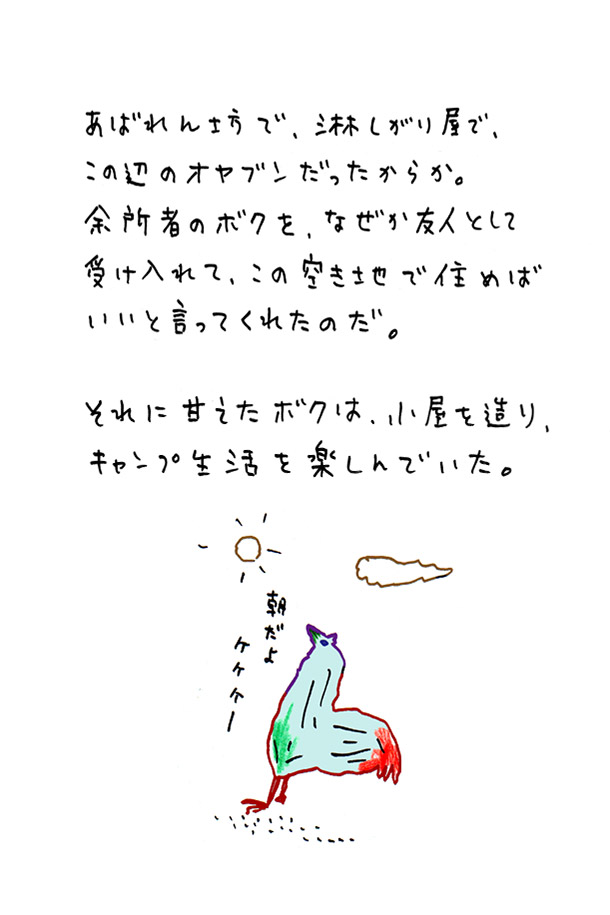 あばれん坊で、淋しがり屋で、
この辺のオヤブンだったからか。
余所者のボクを、なぜか友人として
受け入れて、この空き地で住めば
いいと言ってくれたのだ。
それに甘えたボクは、小屋を造り、
キャンプ生活を楽しんでいた。
朝だよ
ケケケー